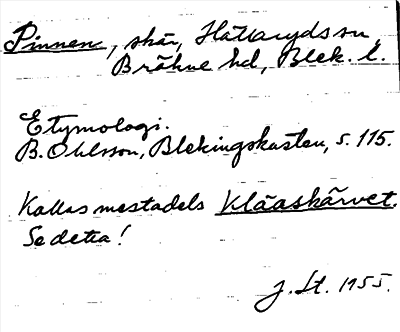 Pinnen, skär, Hällaryds sn,
Bräkne hd, Blek. l.
Etymologi.
B. Ohlsson, Blekingskusten, s. 115.
Kallas mestadels Kläaskärvet.
Se detta!
J. St. 1955.